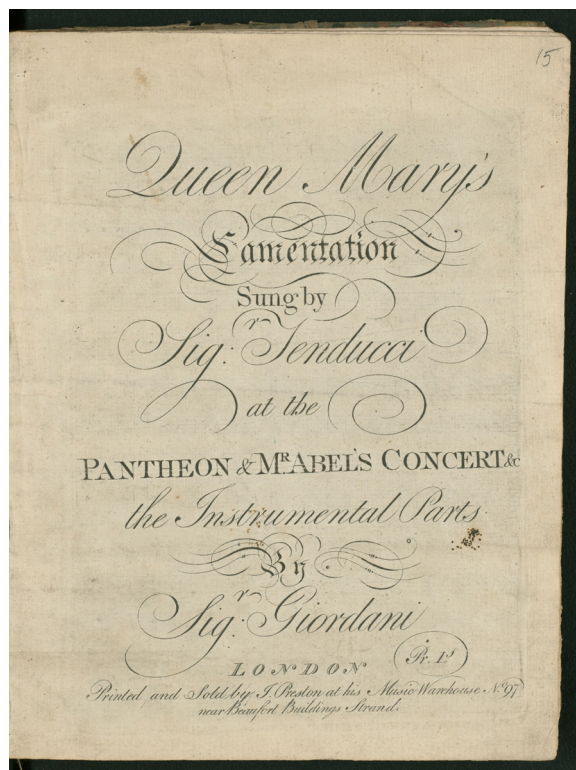 15
Queen Mary's
Lamentation
Sung by
Sigr. Tenducci
at the
PANTHEON & MR. ABEL'S CONCERT &c
the Instrumental Parts
By
Sigr. Giordani
LONDON
Pr. 1s
Printed and Sold by J. Preston at his Music Warehouse No. 97
near Beaufort Buildings Strand.